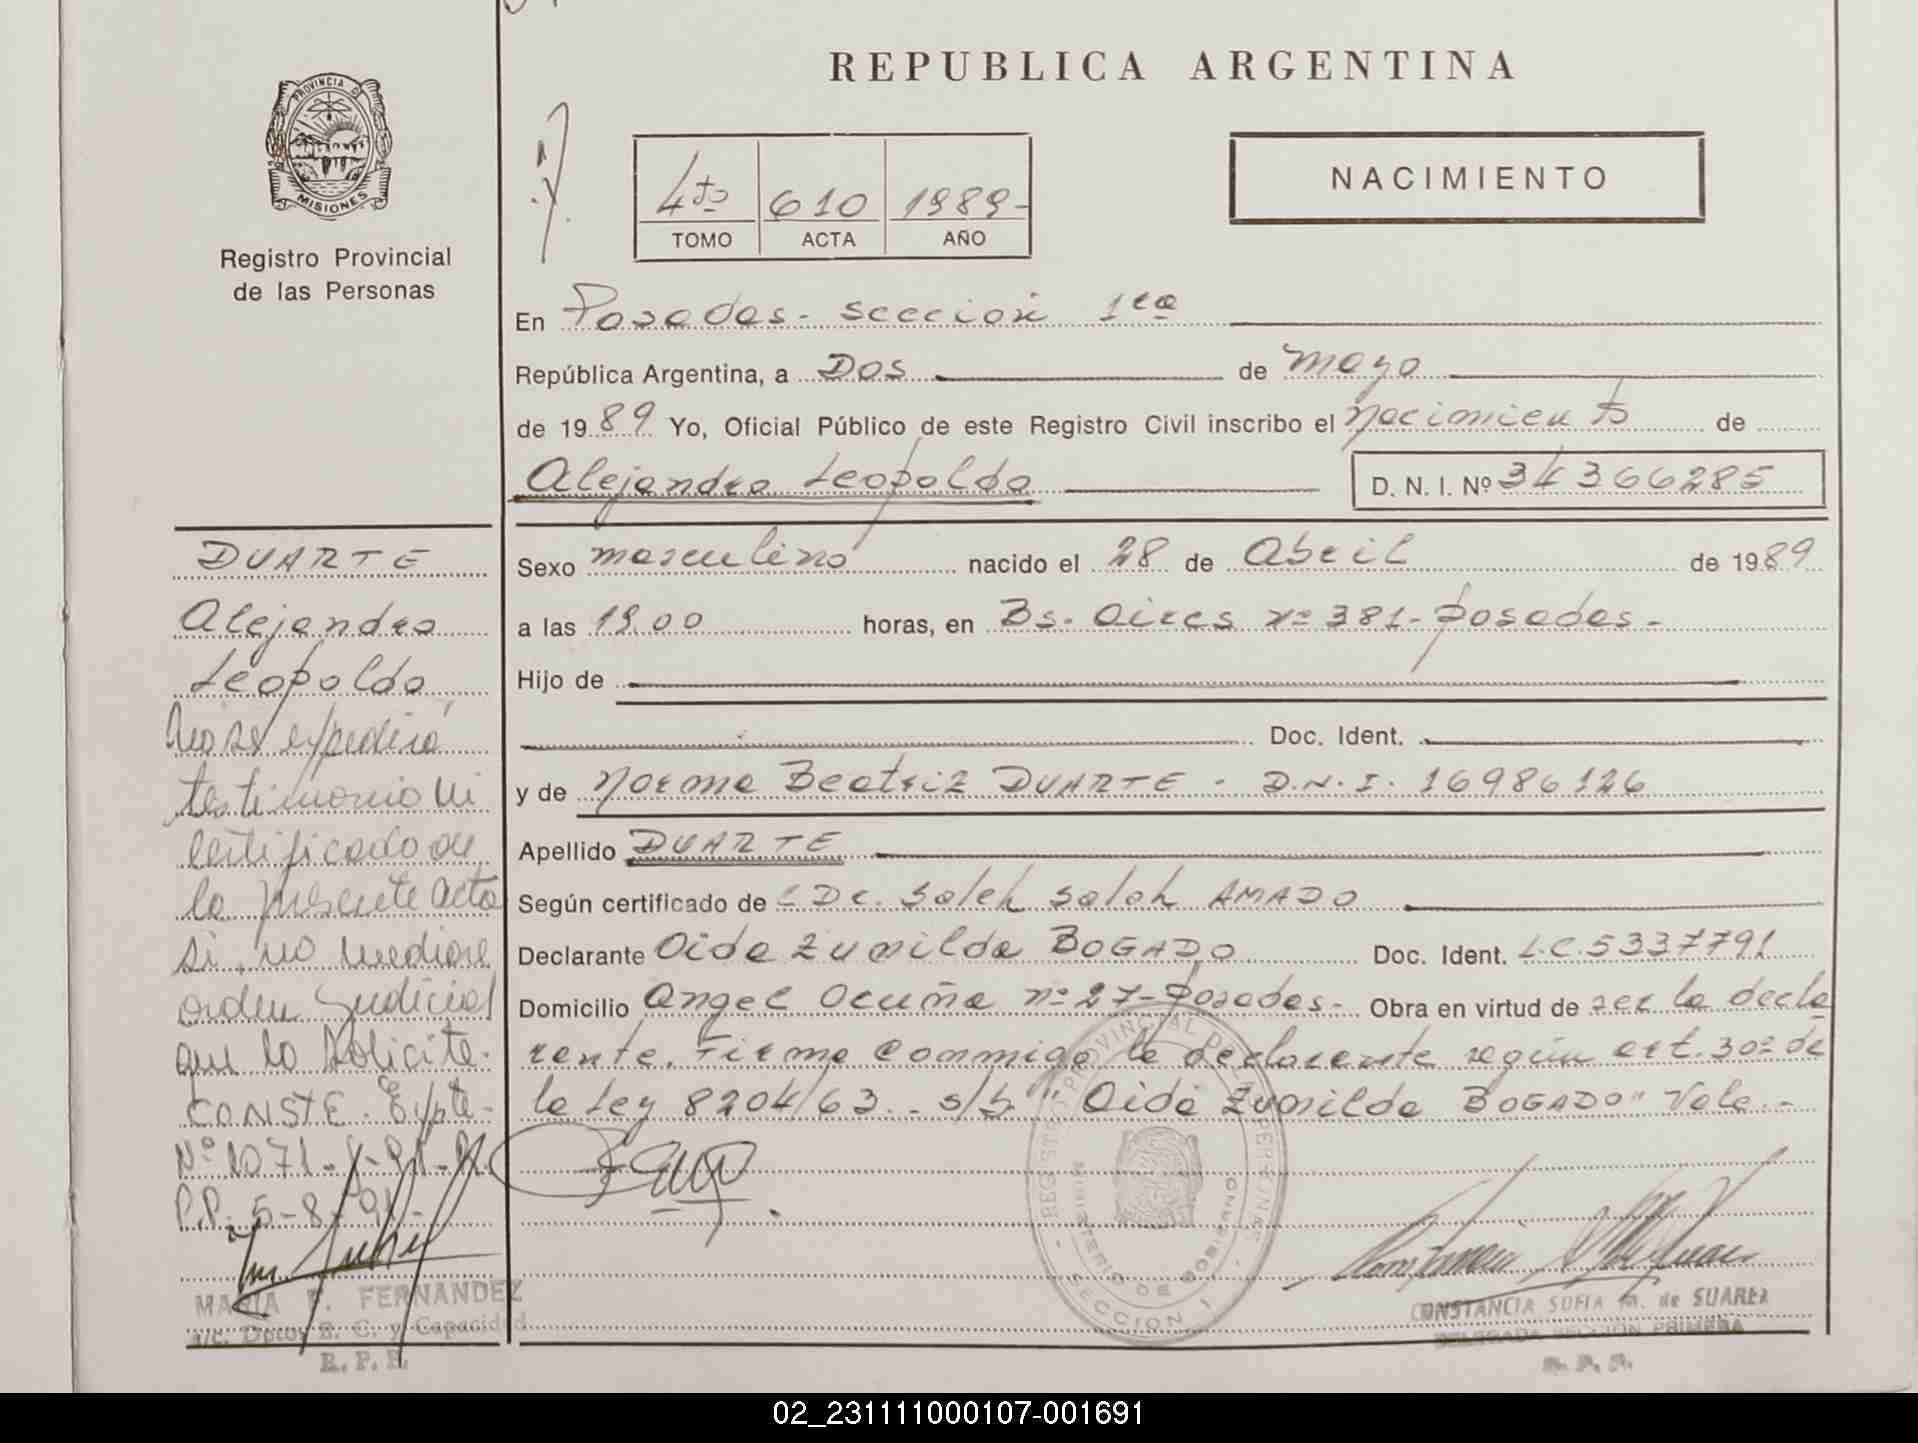 REPUBLICA ARGENTINA
PROVINCIA D
MISIONES
Registro Provincial
de las Personas
4to 610 1989-
TOMO ACTA AÑO
NACIMIENTO
En Posadas - sección 1ra
República Argentina, a DOS de mayo
de 1989 Yo, Oficial Público de este Registro Civil inscribo el nacimiento de
Alejandro Leopoldo D. N. I. Nº 34366285
Sexo masculino nacido el 28 de Abril de 1989
a las 19.00 horas, en Bs. Aires nº 381 - posadas -
Hijo de
Doc. Ident.
y de Norma Beatriz DUARTE - D.N.I. 16986126
Apellido DUARTE
Según certificado de Dr. Saleh Salah AMADO
Declarante Oida Zunilda BOGADO Doc. Ident. L.C. 5337791
Domicilio Angel Ocuña nº 27 - posadas - Obra en virtud de ser la decla
rante. Firma conmigo la declarante según art. 30º de
la Ley 8204/63. - s/b " Oida Zunilda BOGADO" Vale. -
DUARTE
Alejandro
Leopoldo
No se expedirá
testimonio ni
certificado de
la presente acta
si no mediare
orden Judicial
que lo solicite.
CONSTE. Expte-
Nº 1071-
P.P. 5-8-91-
MARIA F. FERNANDEZ
a/c. Dpto. E. C. y Capacidad
R. P. P.
REGISTRO PROVINCIAL DE
MINISTERIO DE GOBIERNO
SECCION 1
CONSTANCIA SOFIA M. de SUAREZ
DELEGADA SECCION PRIMERA
R. P. P.
02_231111000107-001691